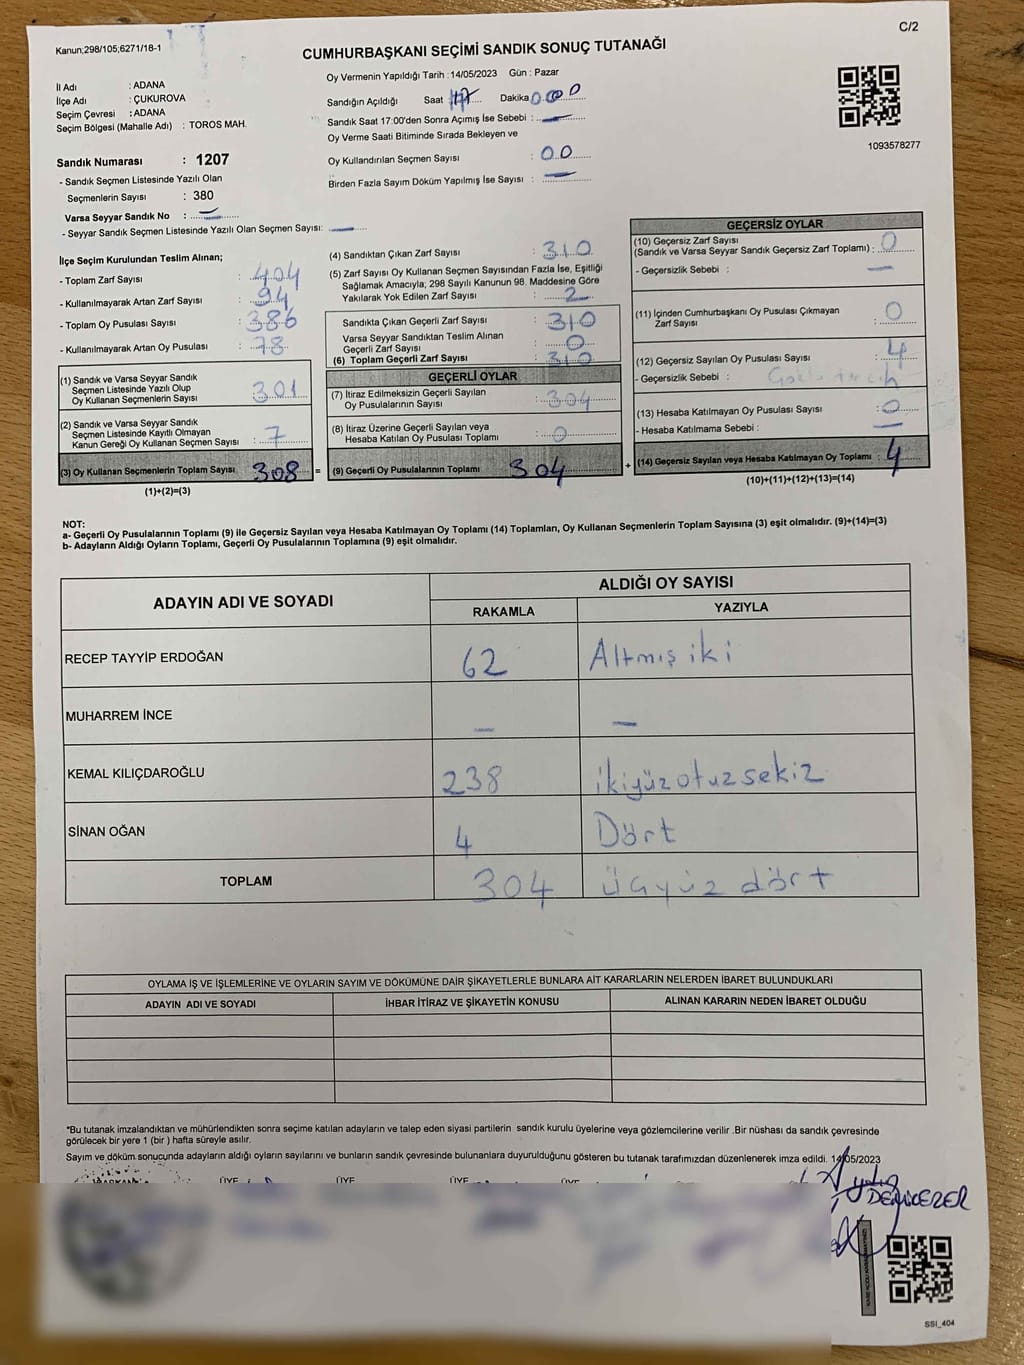 Kanun;298/105;6271/18-1
C/2
CUMHURBAŞKANI SEÇİMİ SANDIK SONUÇ TUTANAĞI
İl Adı : ADANA
İlçe Adı : ÇUKUROVA
Seçim Çevresi : ADANA
Seçim Bölgesi (Mahalle Adı) : TOROS MAH.
Sandık Numarası : 1207
- Sandık Seçmen Listesinde Yazılı Olan
Seçmenlerin Sayısı : 380
Varsa Seyyar Sandık No : —
- Seyyar Sandık Seçmen Listesinde Yazılı Olan Seçmen Sayısı: —
Oy Vermenin Yapıldığı Tarih :14/05/2023 Gün : Pazar
Sandığın Açıldığı Saat 17 Dakika
Sandık Saat 17:00'den Sonra Açımış İse Sebebi : —
Oy Verme Saati Bitiminde Sırada Bekleyen ve
Oy Kullandırılan Seçmen Sayısı : 00
Birden Fazla Sayım Döküm Yapılmış İse Sayısı : —
1093578277
İlçe Seçim Kurulundan Teslim Alınan;
- Toplam Zarf Sayısı : 404
- Kullanılmayarak Artan Zarf Sayısı : 94
- Toplam Oy Pusulası Sayısı : 386
- Kullanılmayarak Artan Oy Pusulası : 78
(1) Sandık ve Varsa Seyyar Sandık
Seçmen Listesinde Yazılı Olup
Oy Kullanan Seçmenlerin Sayısı : 301
(2) Sandık ve Varsa Seyyar Sandık
Seçmen Listesinde Kayıtlı Olmayan
Kanun Gereği Oy Kullanan Seçmen Sayısı : 7
(3) Oy Kullanan Seçmenlerin Toplam Sayısı 308 =
(1)+(2)=(3)
(4) Sandıktan Çıkan Zarf Sayısı : 310
(5) Zarf Sayısı Oy Kullanan Seçmen Sayısından Fazla İse, Eşitliği
Sağlamak Amacıyla; 298 Sayılı Kanunun 98. Maddesine Göre
Yakılarak Yok Edilen Zarf Sayısı : 2
Sandıkta Çıkan Geçerli Zarf Sayısı : 310
Varsa Seyyar Sandıktan Teslim Alınan
Geçerli Zarf Sayısı : 0
(6) Toplam Geçerli Zarf Sayısı : 310
GEÇERLİ OYLAR
(7) İtiraz Edilmeksizin Geçerli Sayılan
Oy Pusulalarının Sayısı : 304
(8) İtiraz Üzerine Geçerli Sayılan veya
Hesaba Katılan Oy Pusulası Toplamı : 0
(9) Geçerli Oy Pusulalarının Toplamı 304 +
GEÇERSİZ OYLAR
(10) Geçersiz Zarf Sayısı
(Sandık ve Varsa Seyyar Sandık Geçersiz Zarf Toplamı) : 0
- Geçersizlik Sebebi : —
(11) İçinden Cumhurbaşkanı Oy Pusulası Çıkmayan
Zarf Sayısı : 0
(12) Geçersiz Sayılan Oy Pusulası Sayısı : 4
- Geçersizlik Sebebi : tercih
(13) Hesaba Katılmayan Oy Pusulası Sayısı : 0
- Hesaba Katılmama Sebebi : —
(14) Geçersiz Sayılan veya Hesaba Katılmayan Oy Toplamı : 4
(10)+(11)+(12)+(13)=(14)
NOT:
a- Geçerli Oy Pusulalarının Toplamı (9) ile Geçersiz Sayılan veya Hesaba Katılmayan Oy Toplamı (14) Toplamları, Oy Kullanan Seçmenlerin Toplam Sayısına (3) eşit olmalıdır. (9)+(14)=(3)
b- Adayların Aldığı Oyların Toplamı, Geçerli Oy Pusulalarının Toplamına (9) eşit olmalıdır.
ADAYIN ADI VE SOYADI ALDIĞI OY SAYISI
RAKAMLA YAZIYLA
RECEP TAYYİP ERDOĞAN 62 Altmış iki
MUHARREM İNCE — —
KEMAL KILIÇDAROĞLU 238 ikiyüz otuz sekiz
SİNAN OĞAN 4 Dört
TOPLAM 304 üçyüz dört
OYLAMA İŞ VE İŞLEMLERİNE VE OYLARIN SAYIM VE DÖKÜMÜNE DAİR ŞİKAYETLERLE BUNLARA AİT KARARLARIN NELERDEN İBARET BULUNDUKLARI
ADAYIN ADI VE SOYADI İHBAR İTİRAZ VE ŞİKAYETİN KONUSU ALINAN KARARIN NEDEN İBARET OLDUĞU
*Bu tutanak imzalandıktan ve mühürlendikten sonra seçime katılan adayların ve talep eden siyasi partilerin sandık kurulu üyelerine veya gözlemcilerine verilir .Bir nüshası da sandık çevresinde
görülecek bir yere 1 (bir ) hafta süreyle asılır.
Sayım ve döküm sonucunda adayların aldığı oyların sayılarını ve bunların sandık çevresinde bulunanlara duyurulduğunu gösteren bu tutanak tarafımızdan düzenlenerek imza edildi. 14/05/2023
BAŞKAN ÜYE ÜYE ÜYE ÜYE
SSI_404